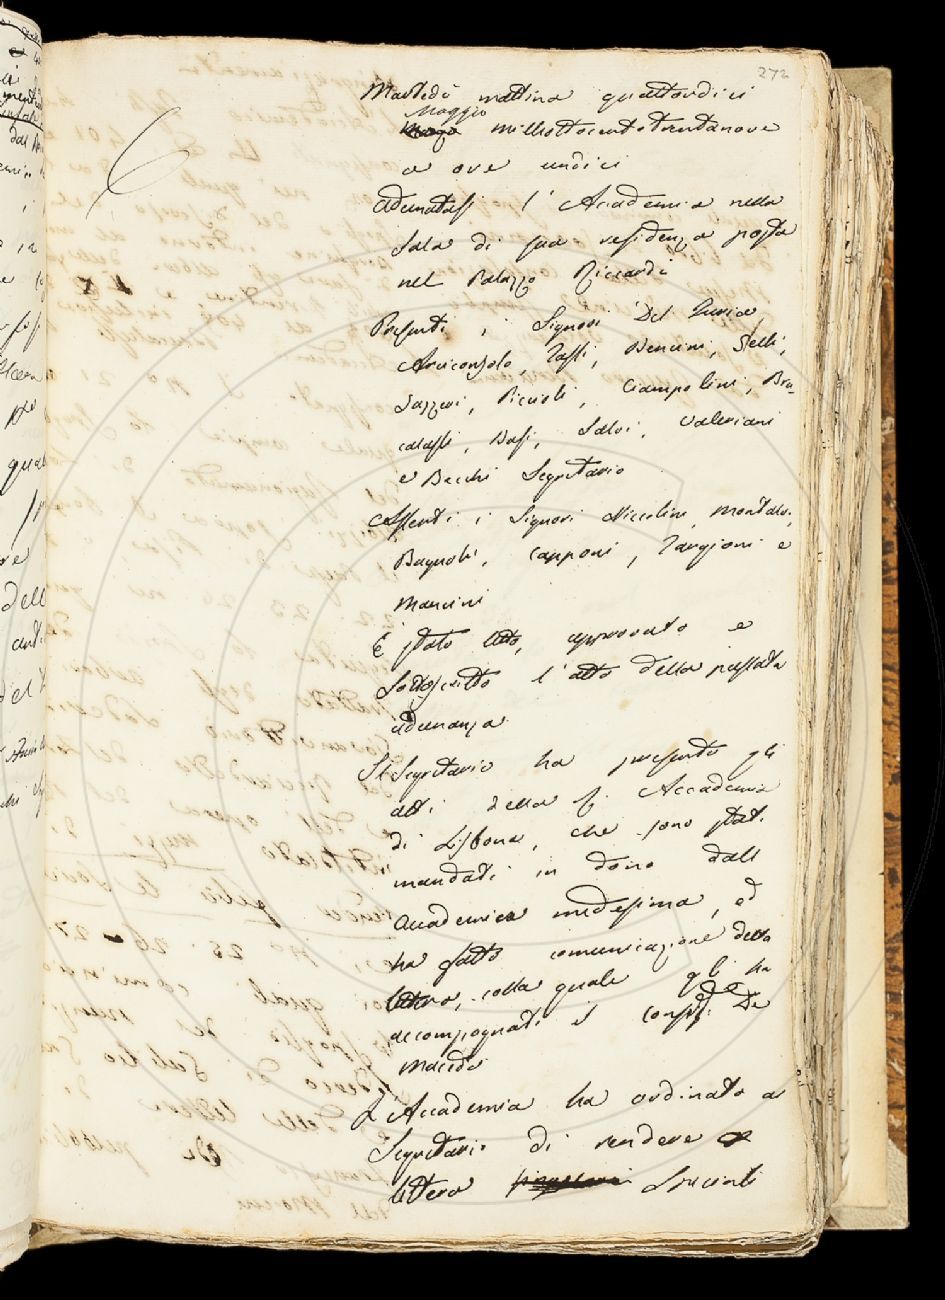 272
Martedì mattina quattordici
Maggio milleottocentotrentanove
a ore undici
Adunatasi l'Accademia nella
Sala di sua residenza posta
nel Palazzo Riccardi
Presenti i Signori Del Furia,
Arciconsolo, Tassi, Bencini, Gelli,
Gazzeri, Piccioli, Ciampolini, Bru-
calassi, Nesi, Salvi, Valeriani
e Becchi Segretario
Assenti i Signori Niccolini, Montalvi,
Bagnoli, Capponi, Targioni e
Mancini
È stato letto, approvato e
Sottoscritto l'atto della passata
adunanza
Il Segretario ha presentato gli
atti della R. Accademia
di Lisbona, che sono stati
mandati in dono dall
Accademia medesima, ed
ha fatto comunicazione della
lettera, colla quale gli ha
accompagnati il De
Macedo
L'Accademia ha ordinato al
Segretario di rendere
lettera